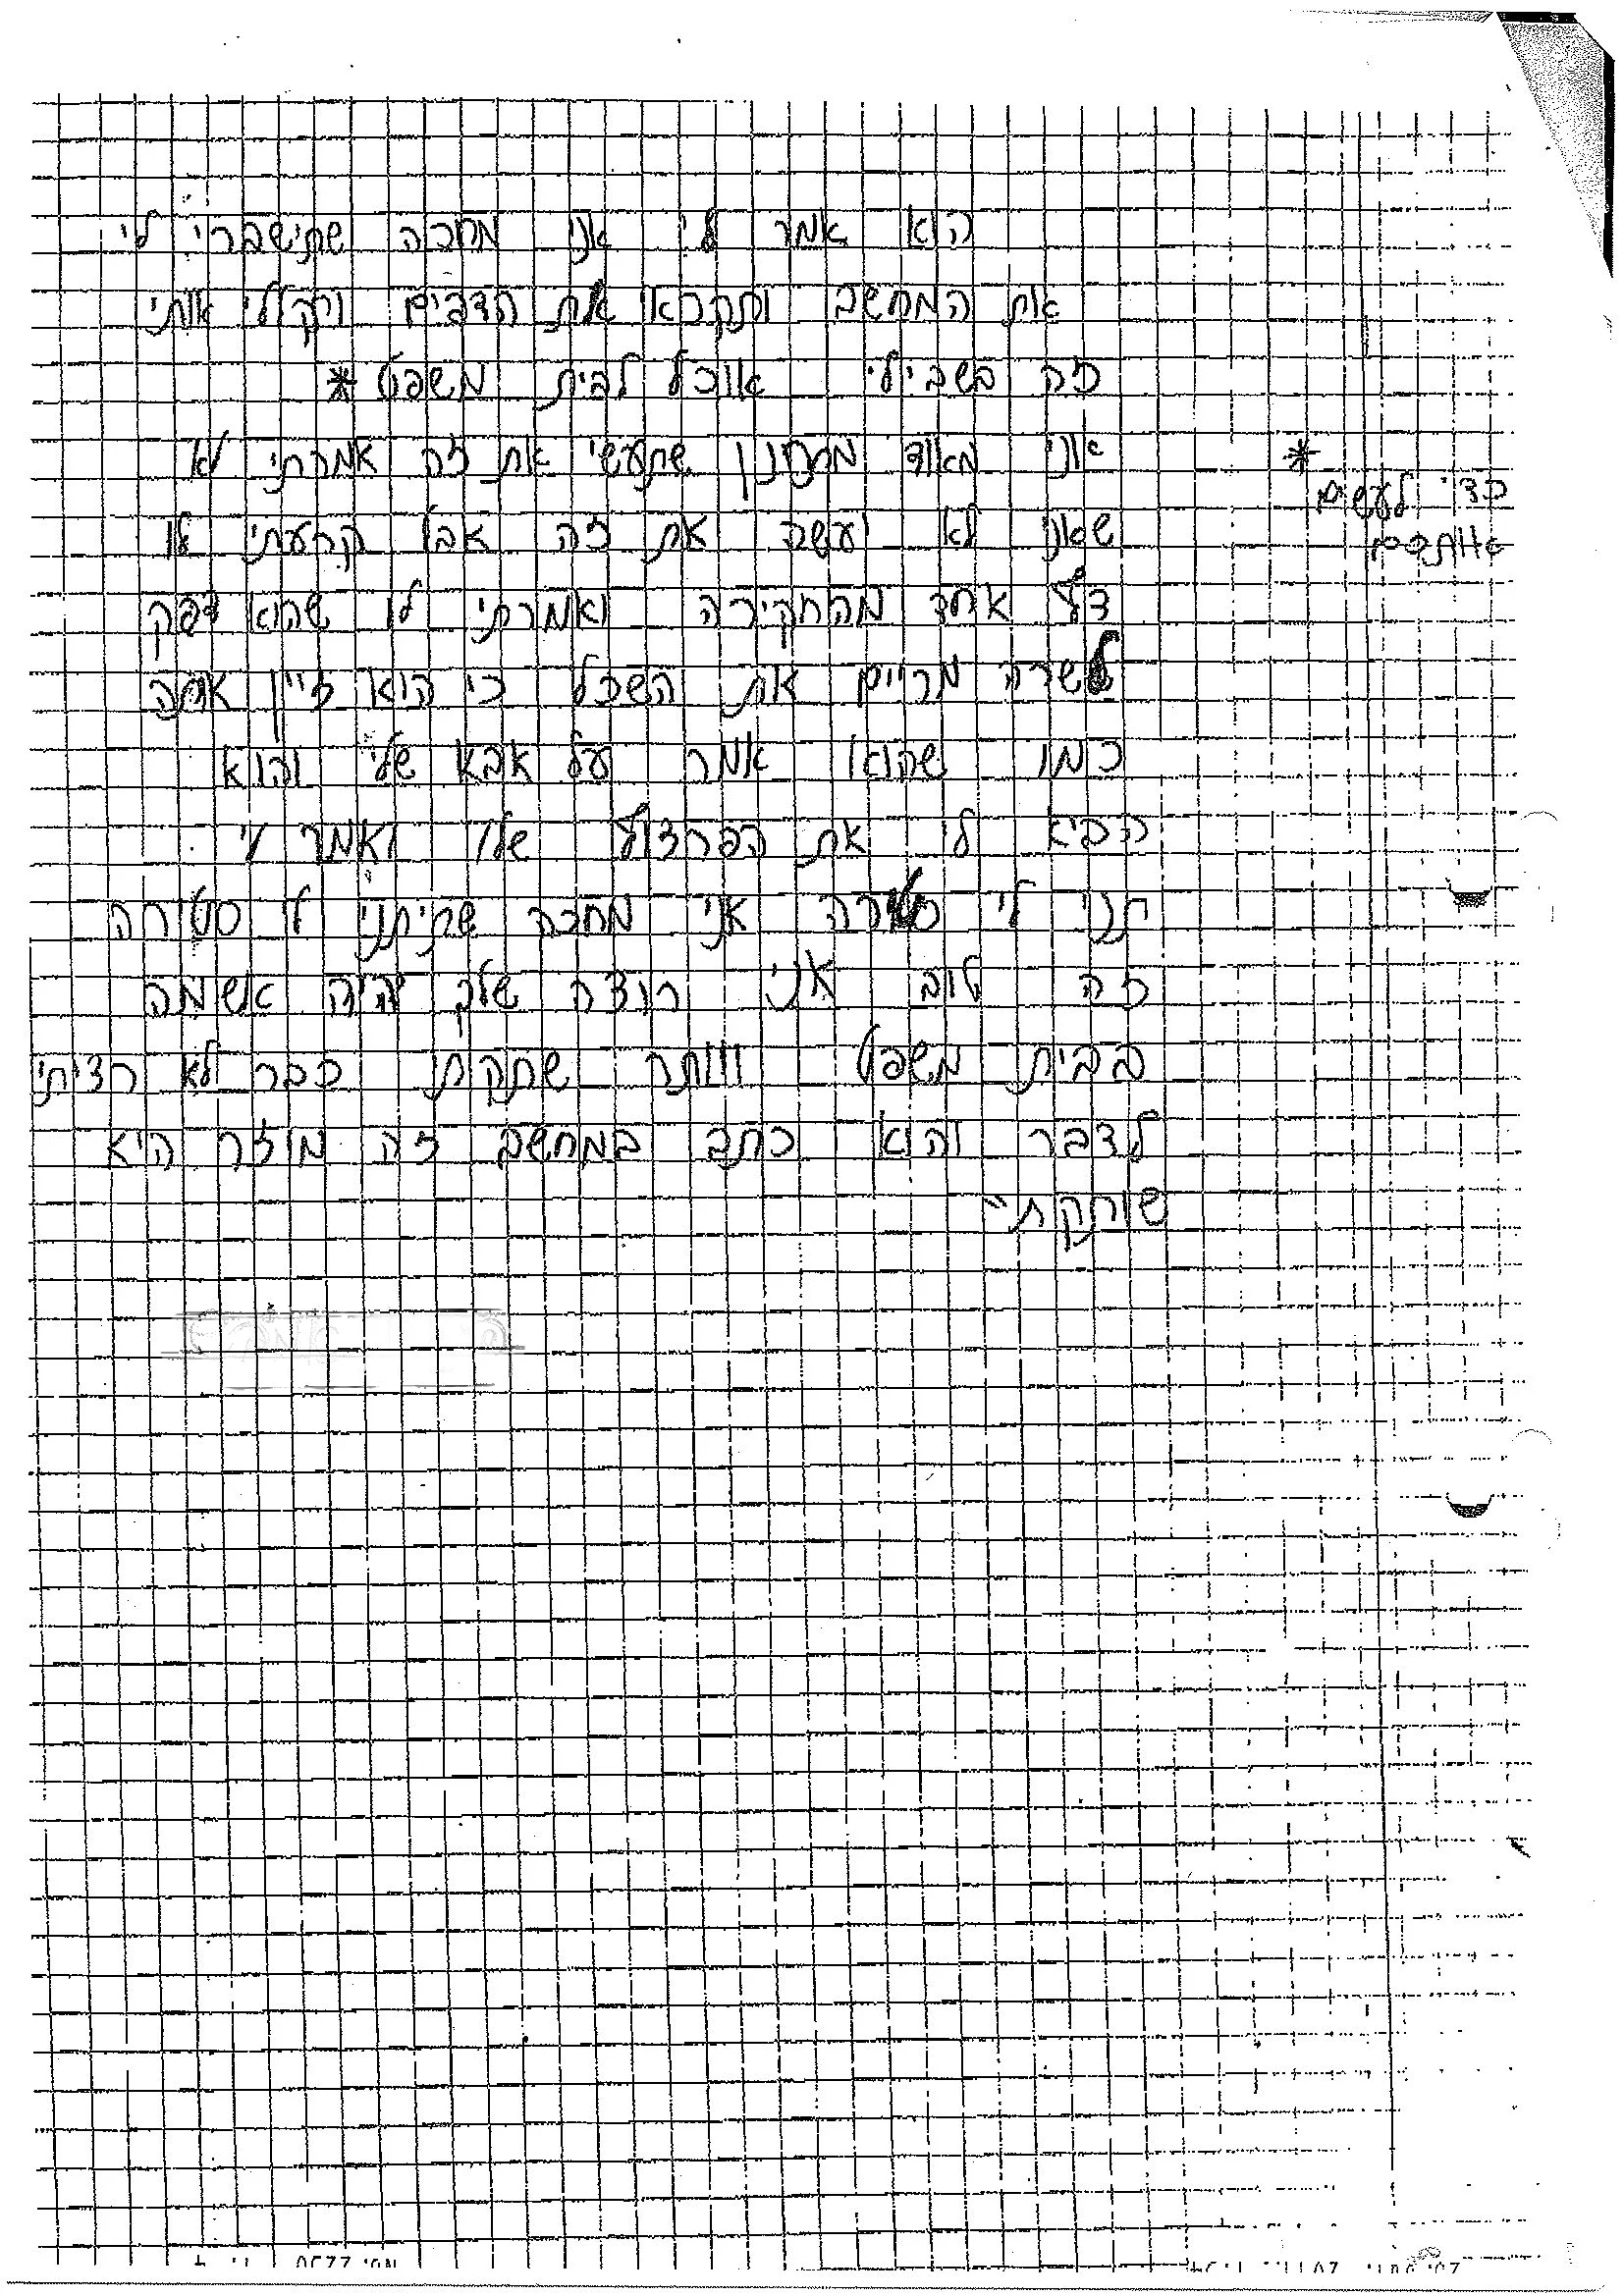 הוא אמר לי אני מחכה שתישברי לי
את המחשב ותקראי את הדפים ותקללי אותי
כה בשבילי אוכל לבית משפט *
אני מאוד מעוניין שתעשי את זה אמרתי לא
* כדי להעשים אותם
שאני לא יעשה את זה אבל קרעתי לו
דף אחד מהחקירה ואמרתי לו שהוא דפק
לשרה מריים את השכל כי הוא זיין אותה
כמו שהוא אמר על אבא שלי והוא
הביא לי את הפרצוף שלו ואמר לי
תני לי סטירה אני מחכה שתיתני לי סטירה
זה טוב אני רוצה שלך יהיה אשמה
בבית משפט ויותר שתקתי כבר לא רציתי
לדבר והוא כתב במחשב זה מוזר היא
שותקת"